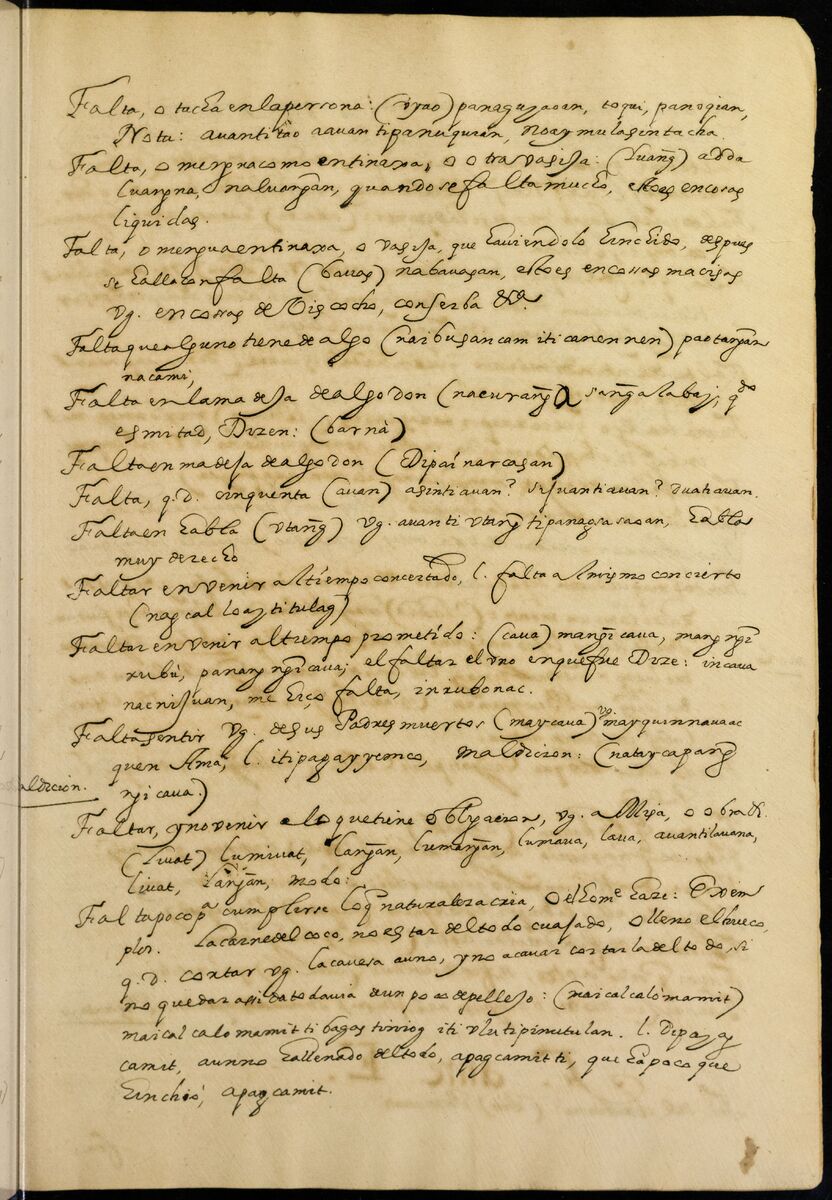 Falta, o tacha enlapersona: (iyao) panagujaoan, toqui, panogian,
Nota: auanti tao aauantipanuquien, noay mulasintacha.
Falta, o mengua como entinaxa, o otra vasija: (luang̃)
luangna, naluangan, quando se falta mucho, estoes en cosas
liquidas.
Falta, o mengua entinaxa, o vasija, que haviendolo hinchido, despues
se halla con falta (bauas) nabauasan, estoes en cossas macisas
Vg. en cossas de Biscocho, conserba &ᵃ.
Falta que alguno tiene de algo (nai busancam iti canen nen) paotangan
nacami,
Falta en lamadeja de algodon (nacurang̃ a sang̃alabaj, qᵈᵒ
es mitad, Dizen: (barna)
Falta en madeja de algodon (Dipaínarcasan)
Falta, q.d. cinquenta (auan) asintiauan? sijuantiauan? Juatiauan.
Falta en habla (vtang̃) Vg. auanti vtang̃ tipanagsasaoan, habla
muy derecho
Faltar en venir al tíempo concertado, l. falta al mismo concierto
(nagcal loay titulag)
Faltar en venir al tiempo prometído: (caua)
rubù, panang ngĩ caua; el faltar el vno en que fue Dize: incaua
nacnijuan, me hiço falta, inirubonac.
Falta sentir Vg. de sus Padres muertos (maycaua) vg. mayquinnauaac
quen Ama, l. maldicion: (nataycapang̃
ngi caua.)
aldicion.
Faltar, y no venir a lo que tiene obligacion, vg. a Misa, o obra &.
(Liuat) lumiuat, langan, lumangan, lumaua, laua, auantilauana,
liuat, langan, modo:
Falta poco pᵃ cumplirse loq̃ naturaleza cria, o el homᵉ haze: Exem
plos. la carne del coco, no estar del todo cuajado, o lleno el hueco,
q.d. cortar vg. la cauesa auno, y no acauar cortarla del todo, si
no quedar assida todauia de un poco de pellejo: (naicalcalòmamit)
naicalcalomamit ti bagas tiniog iti vlu tipinutulan. l.
camit, aun no ha llenado del todo, apagcamit ti, que ha poco que
hinchió, apagcamit.